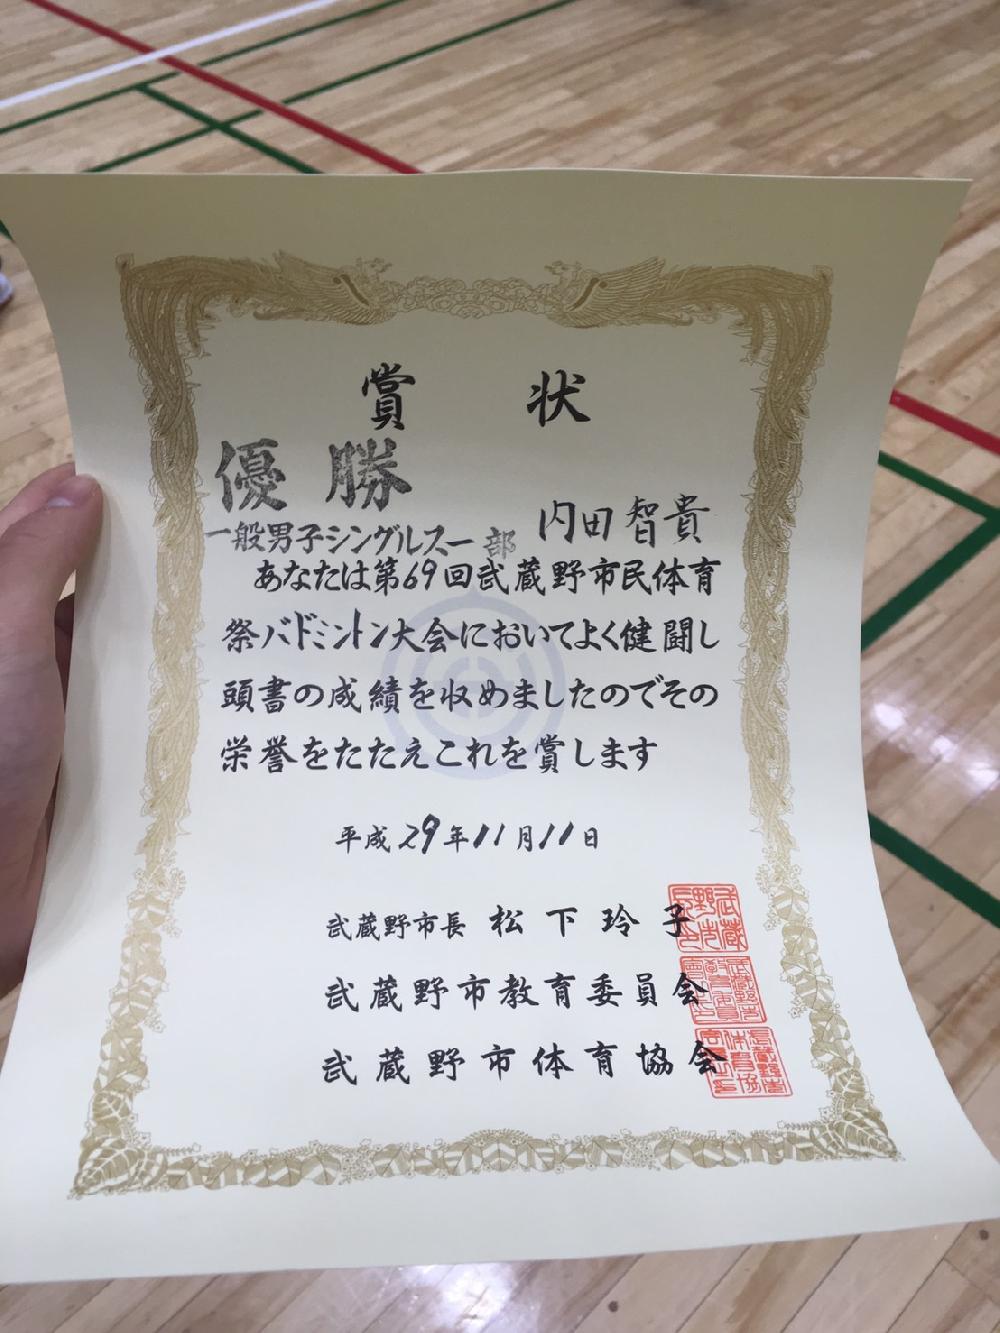 賞状
優勝
一般男子シングルス一部
内田智貴
あなたは第69回武蔵野市民体育
祭バドミントン大会においてよく健闘し
頭書の成績を収めましたのでその
栄誉をたたえこれを賞します
平成29年11月11日
武蔵野市長 松下玲子
武蔵野市教育委員会
武蔵野市体育協会